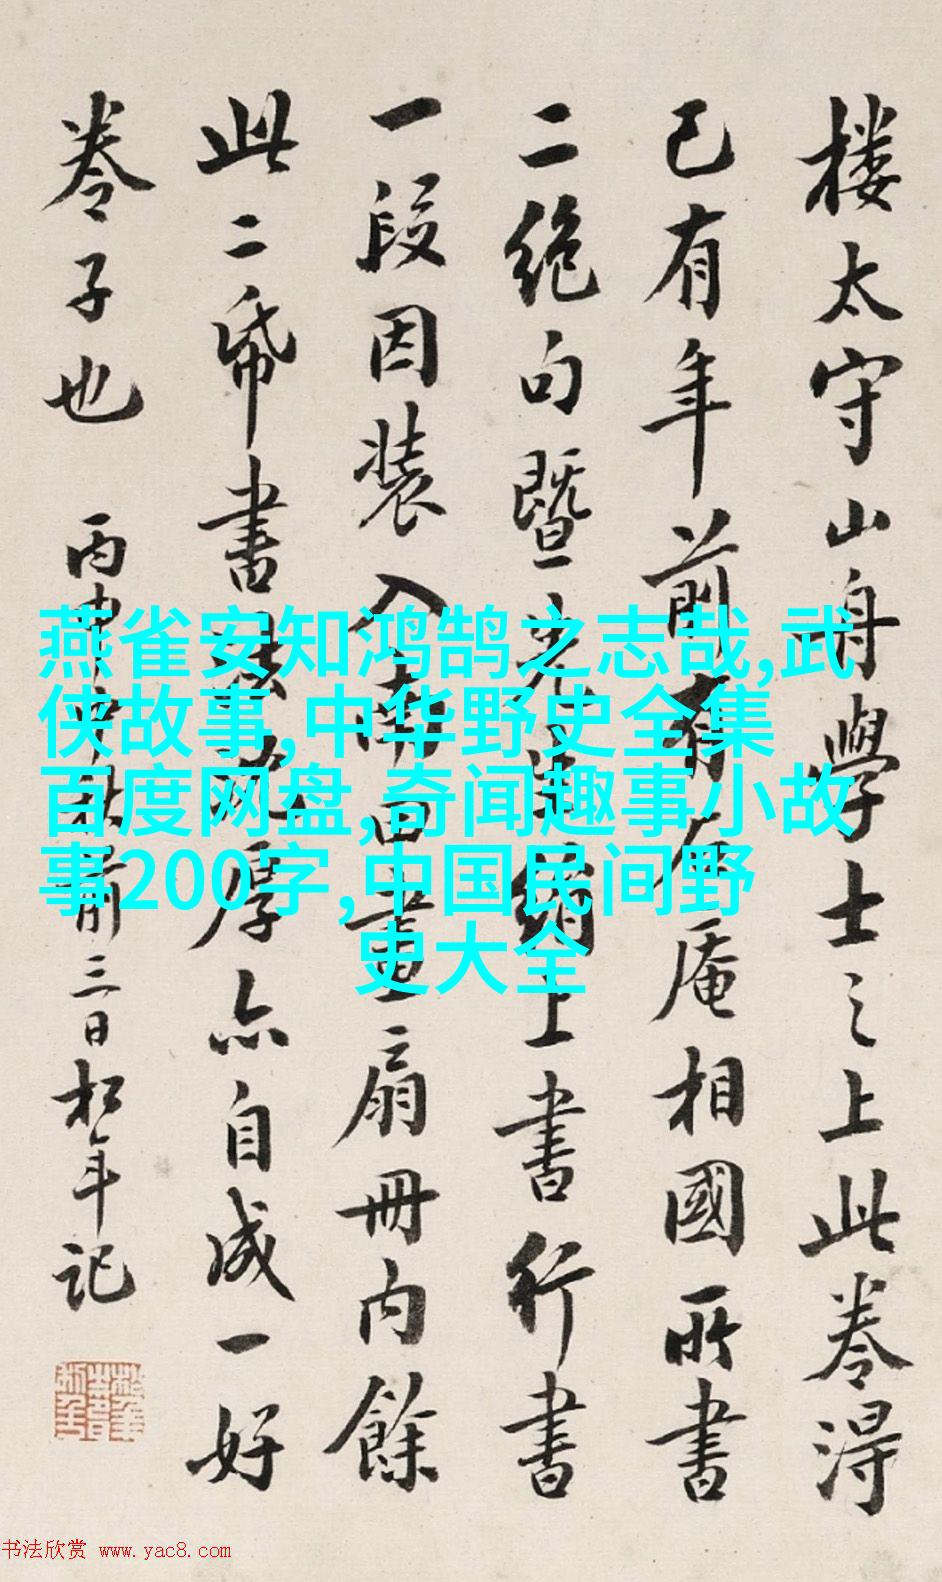 楼太守山舟學士之上此卷得
已有年前有石庵相國所書
二絕句暨先生絹上書行書
一段因装入南田畫扇冊内餘
此二帋書法厚亦自成一好
卷子也 丙申中秋前三日松年记
燕雀安知鸿鹄之志哉,武
侠故事,中华野史全集
百度网盘,奇闻趣事小故
事200字,中国民间野
史大全
书法欣赏 www.yac8.com